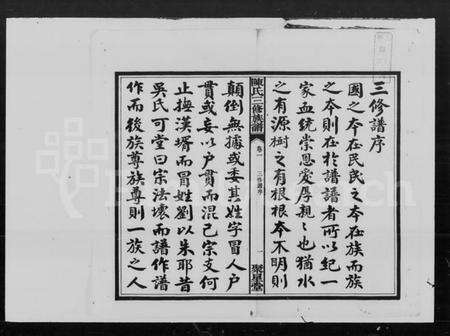 三修譜序
國之本在民民之本在族而族
之本則在於譜譜者所以紀一
家血統崇恩愛厚親親也猶水
之有源樹之有根根本不明則
陳氏三修族譜
卷一
三修譜序
一
聚星堂
顛倒無據或委其姓字冒人户
貫或妄以户貫而混己宗支何
止撫漢壻而冒姓劉以朱耶昔
吳氏可堂曰宗法壞而譜作譜
作而後族尊族尊則一族之人